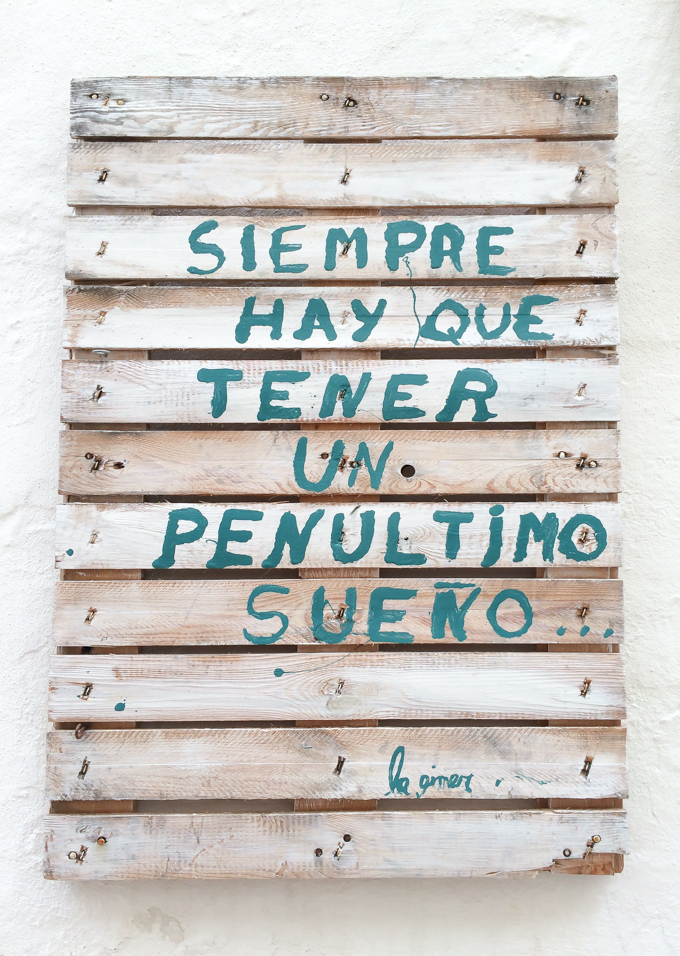 SIEMPRE
HAY QUE
TENER
UN
PENULTiMO
SUEÑO...
la